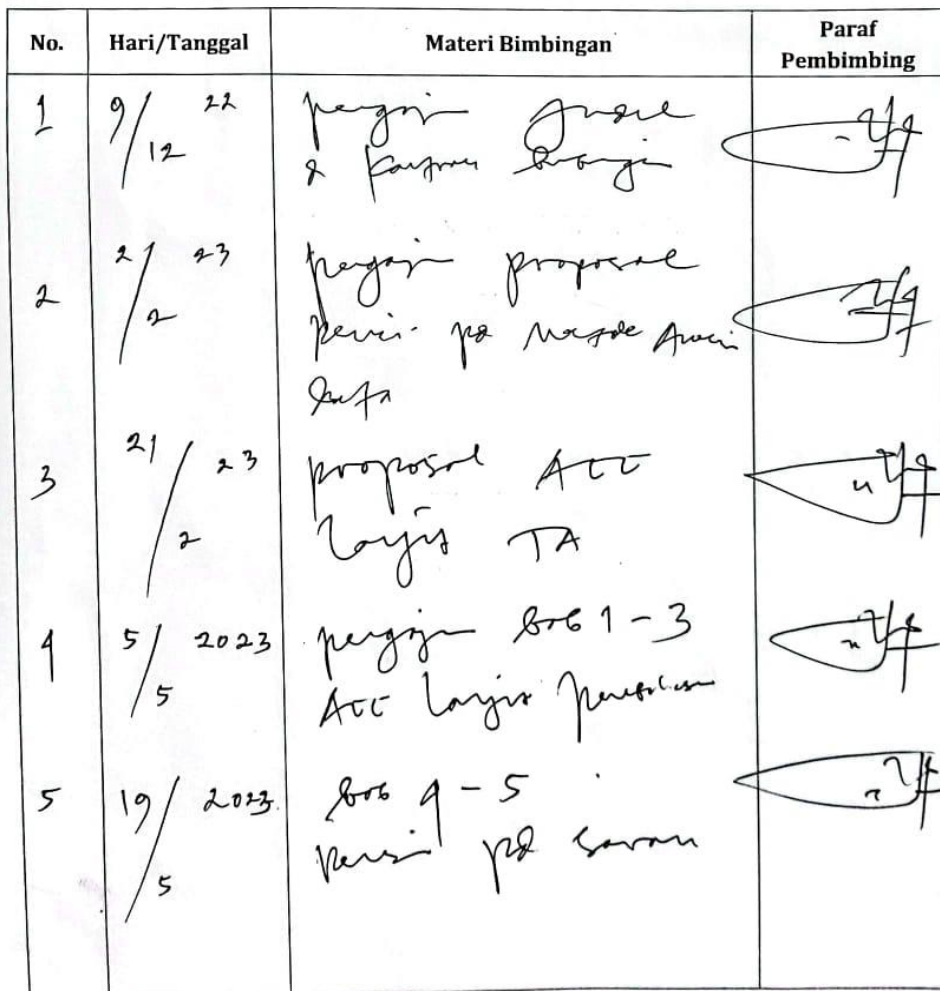 No. Hari/Tanggal Materi Bimbingan Paraf Pembimbing
1 9/12 22 pengajuan
&
2 2/2 23 pengajuan proposal
revisi pd
3 21/2 23 proposal ACC
lanjut TA
4 5/5 2023 pengajuan bab 1-3
ACC lanjut
5 19/5 2023 bab 4-5
revisi pd saran